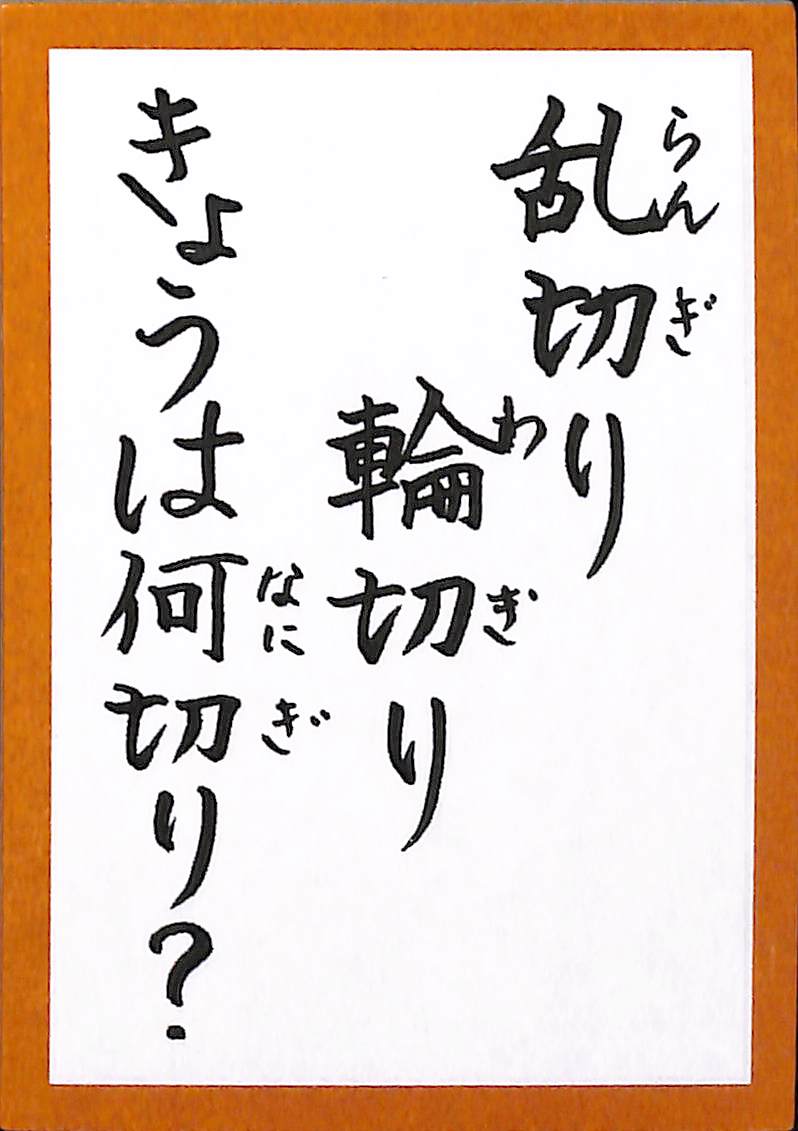 乱切り
輪切り
きょうは何切り?
らんぎ
わぎ
なにぎ